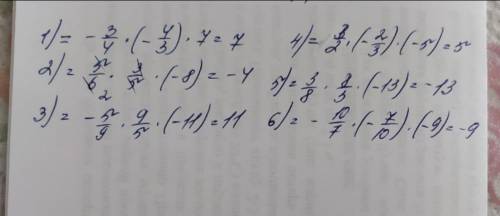 1) = - 3/4 · (- 4/3) · 7 = 7
2) = 5/6 · 3/5 · (-8) = -4
2
3) = - 5/9 · 9/5 · (-11) = 11
4) = 3/2 · (- 2/3) · (-5) = 5
5) = 3/8 · 8/3 · (-13) = -13
6) = - 10/7 · (- 7/10) · (-9) = -9